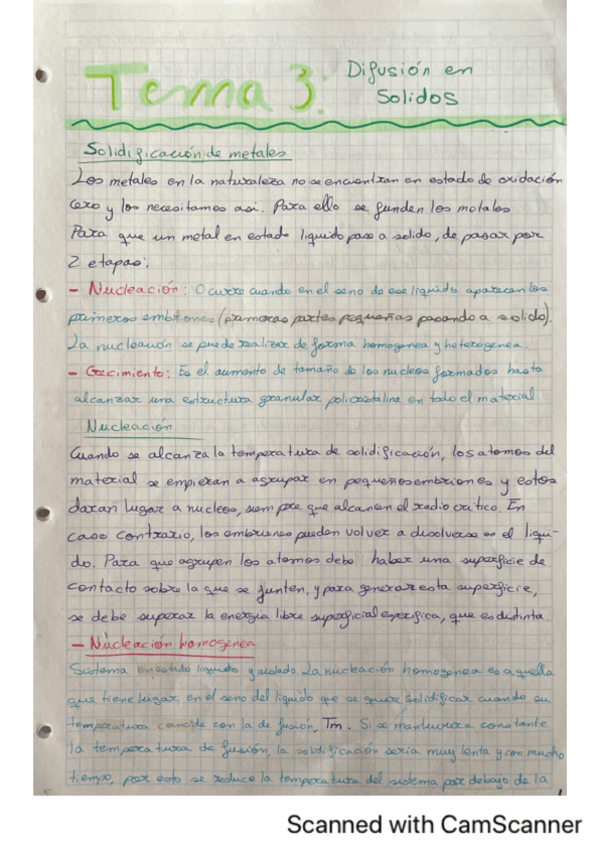 Tema 3: Difusión en
Solidos
Solidificación de metales
Los metales en la naturaleza no se encuentran en estado de oxidación
cero y los necesitamos asi. Para ello se funden los metales
Para que un metal en estado liquido pase a solido, de pasar por
2 etapas:
- Nucleación: Ocurre cuando en el seno de ese liquido aparecen los
primeros embriones (primeras partes pequeñas pasando a solido).
La nucleación se puede realizar de forma homogenea y heterogenea.
- Crecimiento: Es el aumento de tamaño de los nucleos formados hasta
alcanzar una estructura granular policristalina en todo el material
Nucleación
Cuando se alcanza la temperatura de solidificación, los atomos del
material se empiezan a agrupar en pequeños embriones y estos
daran lugar a nucleos, siempre que alcancen el radio critico. En
caso contrario, los embriones pueden volver a disolverse en el liqui-
do. Para que agrupen los atomos debe haber una superficie de
contacto sobre la que se junten, y para generar esta superficie,
se debe superar la energia libre superficial especifica, que es distinta.
- Nucleación homogenea
Sistema en estado liquido y aislado. La nucleación homogenea es aquella
que tiene lugar en el seno del liquido que se quiere solidificar cuando su
temperatura coincide con la de fusión, Tm. Si se mantuviera constante
la temperatura de fusión, la solidificación seria muy lenta y con mucho
tiempo, por esto se reduce la temperatura del sistema por debajo de la
Scanned with CamScanner